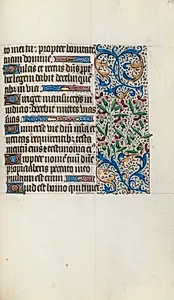 to mei tu: propter bonitatē
tuam domine.
Dulcis et rectus dñs ppt̄
hoc legem dabit delinquē
tibus in via.
Diriget mansuetos in iu
dicio: docebit mites vias
suas.
Universe vie dñi mīa et
veritas requirentibus testa
mentū eius et testimonia ei
Propter nomē tuū dñe
propiciaberis peccato meo
multum est enim
Quis est homo qui timet